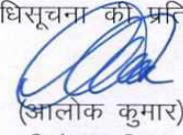 धिसूचना की प्रति
(आलोक कुमार)